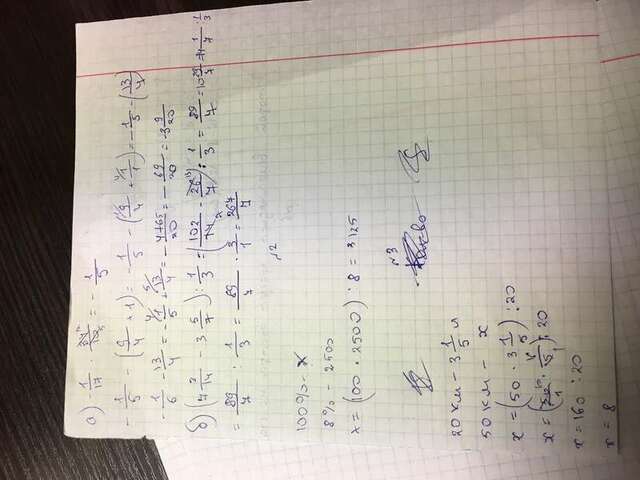 а) - 1/17 · 34/10 = - 1/5
- 1/5 - (9/4 + 1) = - 1/5 - (9/4 + 1/1) = - 1/5 - (13/4)
- 1/6 - 13/4 = - 1/5 + 13/4 = - 4+65/20 = - 69/20 = -3 9/20
: 1/3 = : 1/3 = 89/7
= 89/7 : 1/3 = 89/7 · 3/1 = 267/7
№2
100% - x
8% - 2500
x = (100 · 2500) : 8 = 3125
№3
20 км - 3 1/5 л
50 км - x
x = (50 · 3 1/5) : 20
x = (50/1 · 16/5) : 20
x = 160 : 20
x = 8